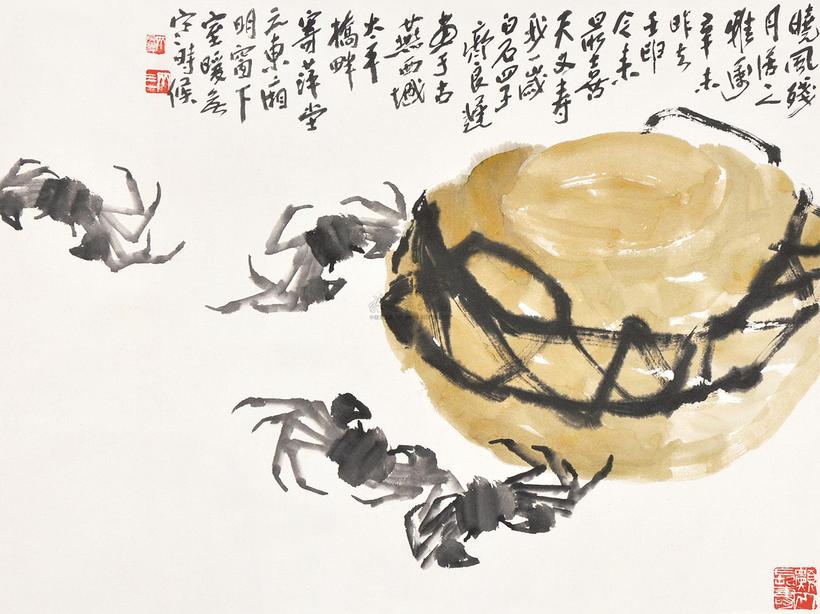 曉風殘
月落之
雅
辛未
昨去
壬
今来
最喜
天又壽
我一歲
白石四子
齊良遲
畫于古
燕西城
太平
橋畔
寄萍堂
東廂
明窗下
室暖無
時候